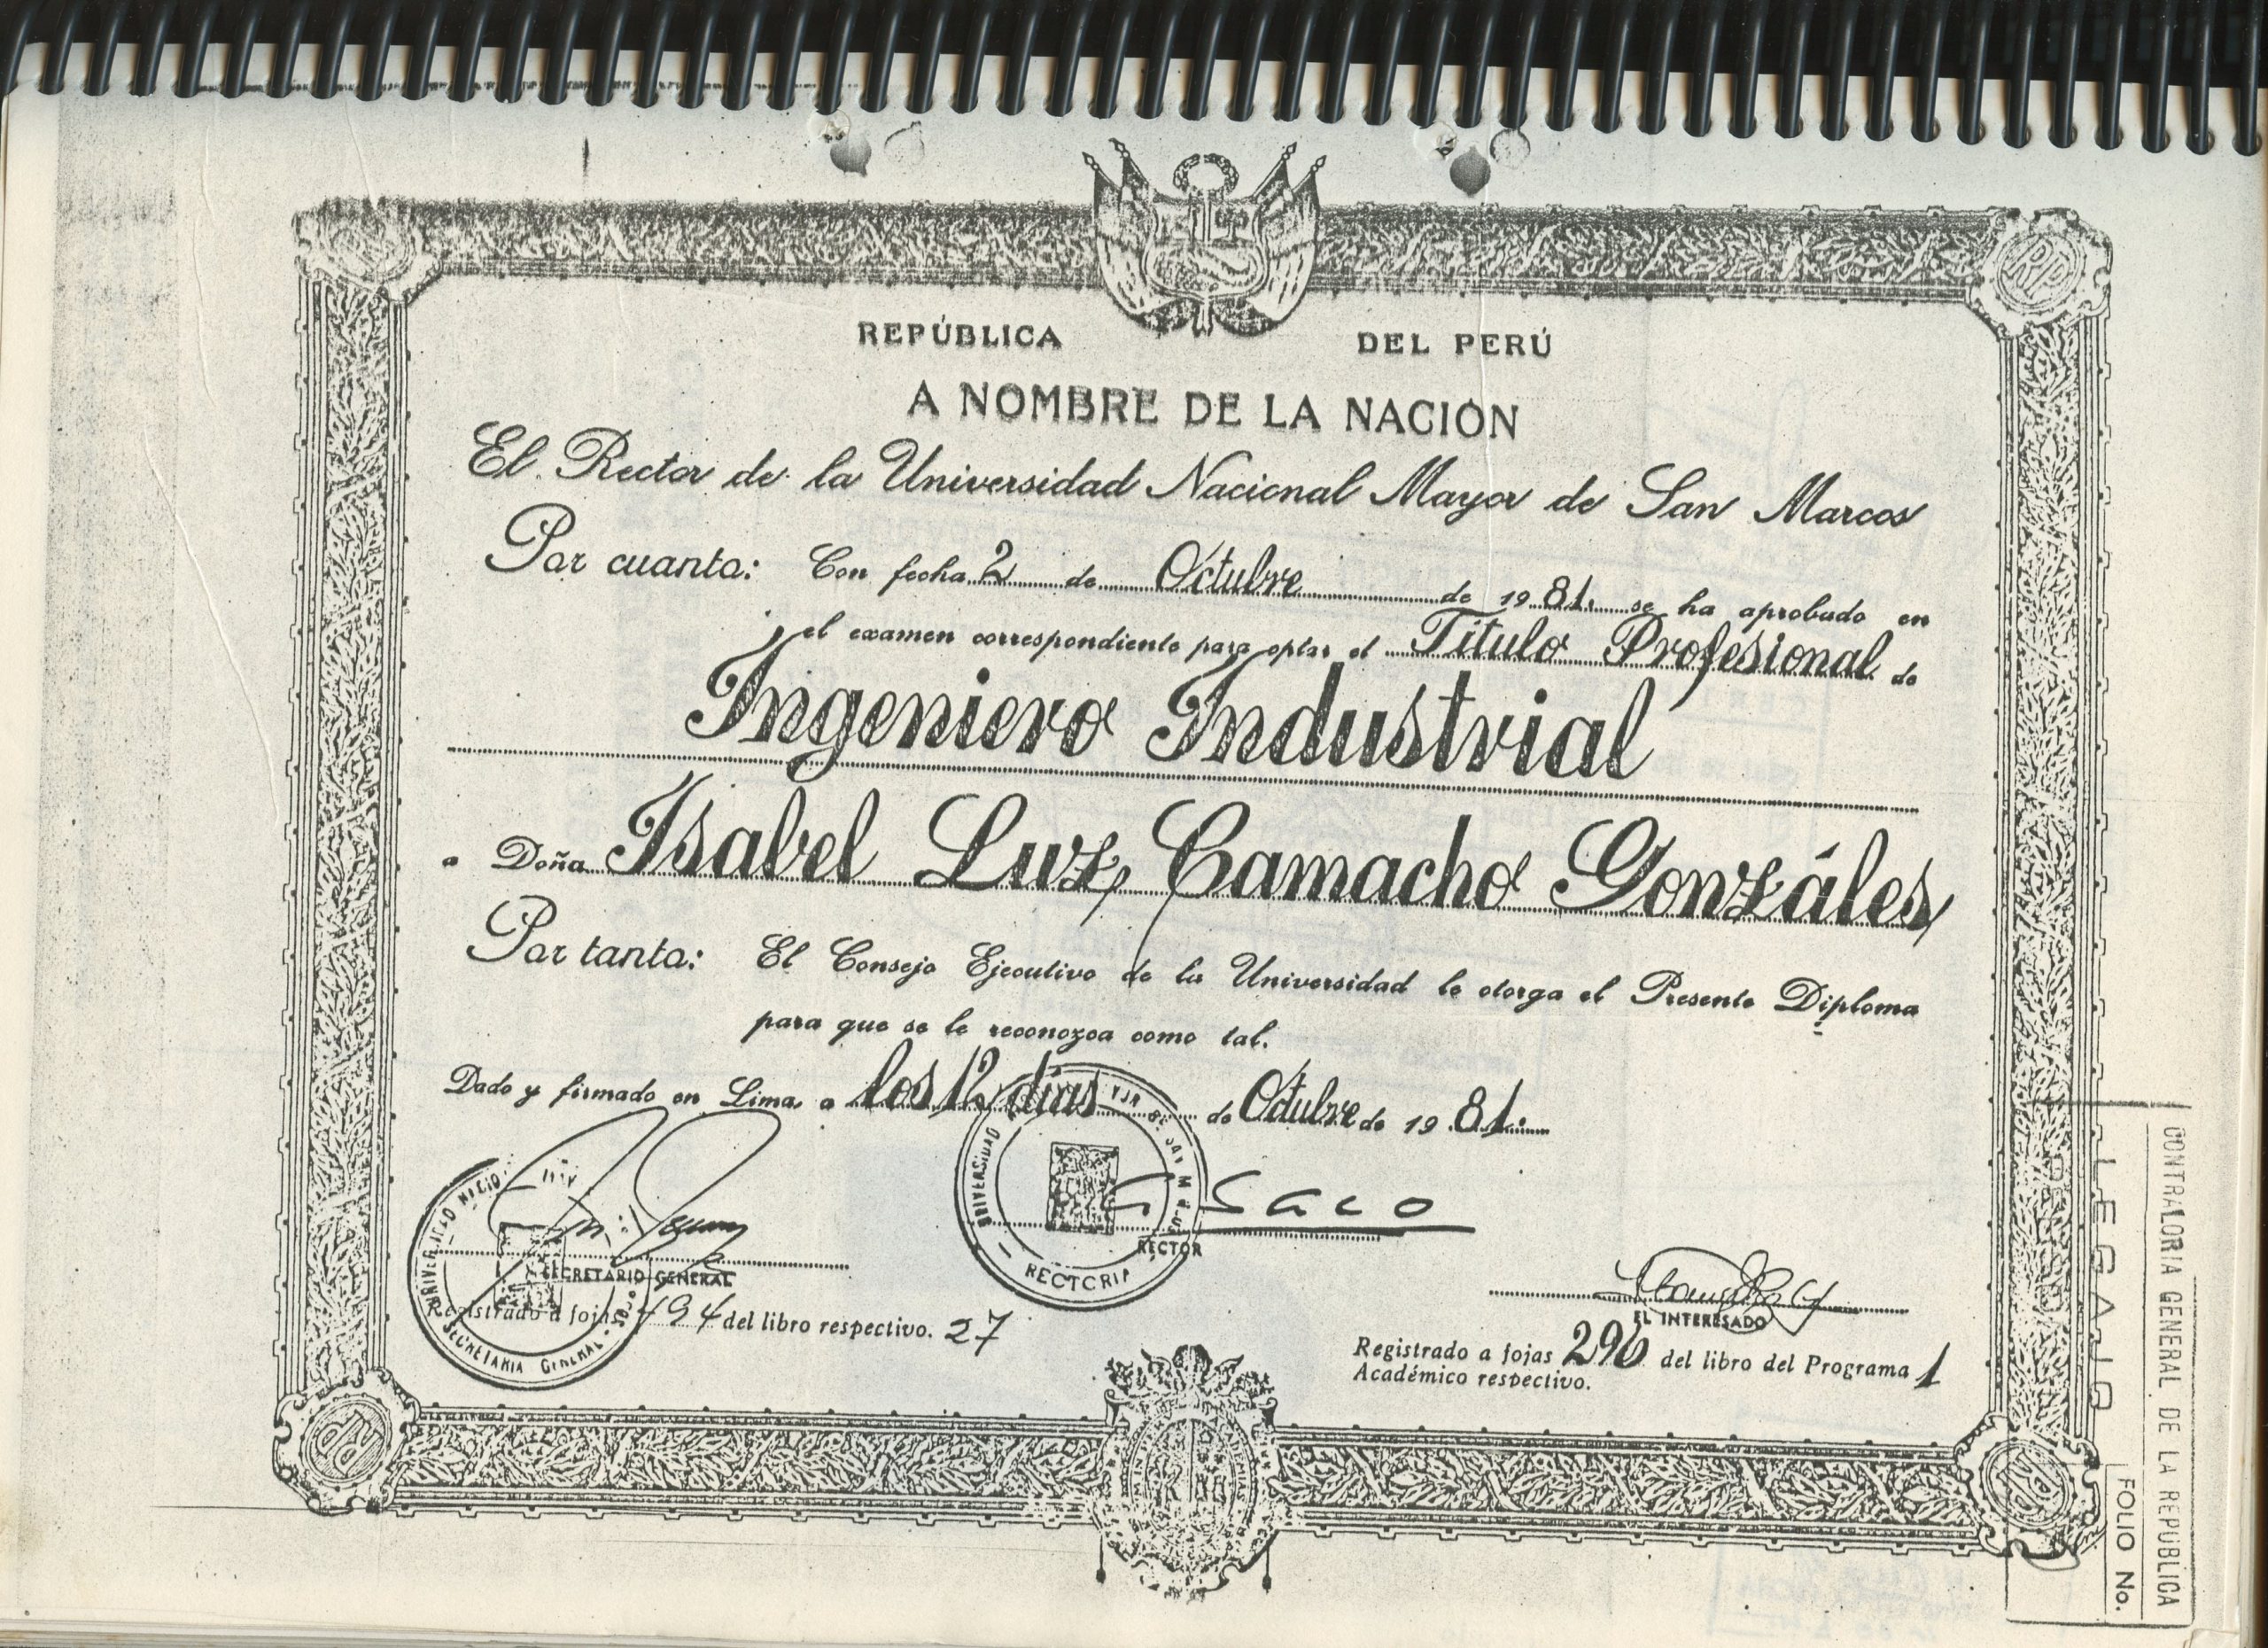 REPÚBLICA DEL PERÚ
A NOMBRE DE LA NACIÓN
El Rector de la Universidad Nacional Mayor de San Marcos
Por cuanto: Con fecha 2 de Octubre de 1981. se ha aprobado en
el examen correspondiente para optar el Título Profesional de
Ingeniero Industrial
a Doña Isabel Luz Camacho Gonzáles
Por tanto: El Consejo Ejecutivo de la Universidad le otorga el Presente Diploma
para que se le reconozca como tal.
Dado y firmado en Lima, a los 12 días de Octubre de 1981.
Saco
RECTOR
RECTORIA
SECRETARIO GENERAL
SECRETARIA GENERAL
Registrado a fojas 494 del libro respectivo. 27
EL INTERESADO
Registrado a fojas 296 del libro del Programa 1
Académico respectivo.
RP
RP
RP
LEGAJO
CONTRALORIA GENERAL DE LA REPUBLICA
FOLIO No.